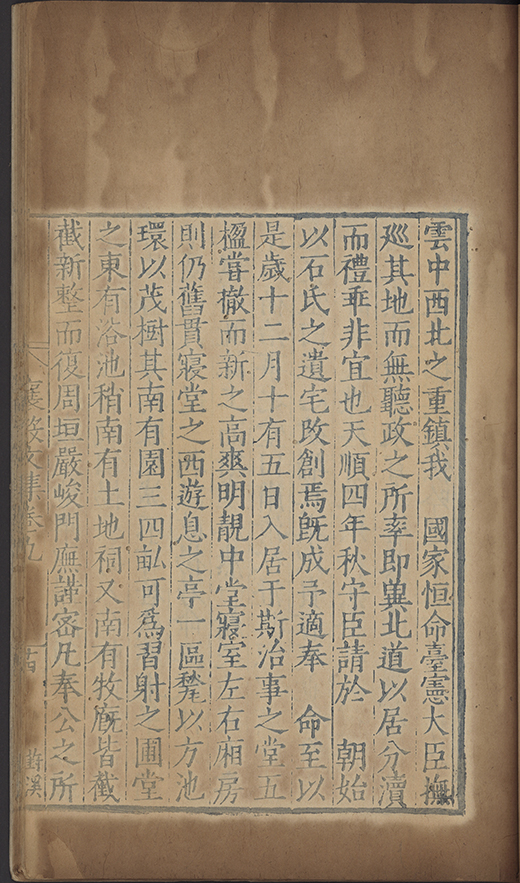 雲中西北之重鎮我　國家恒命臺憲大臣撫
廵其地而無聽政之所率即㒷北道以居分瀆
而禮乖非宜也天順四年秋守臣請於　朝始
以石氏之遺宅改創焉旣成予適奉　命至以
是歲十二月十有五日入居于斯治事之堂五
楹嘗撤而新之高爽明靚中堂寢室左右廂房
則仍舊貫寢堂之西遊息之亭一區甃以方池
環以茂樹其南有園三四畝可爲習射之圃堂
之東有浴池稍南有土地祠又南有牧廐皆截
截新整而復周垣嚴峻門廡謹密凡奉公之所
襄毅文集卷九